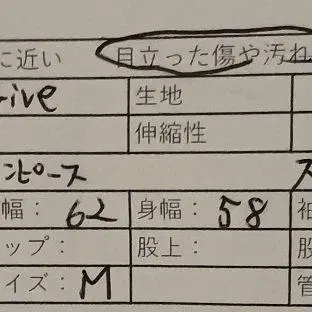 に近い 目立った傷や汚れ
ive 生地
伸縮性
ンピース
幅： 62 身幅： 58 袖
ップ： 股上： 股
イズ： M